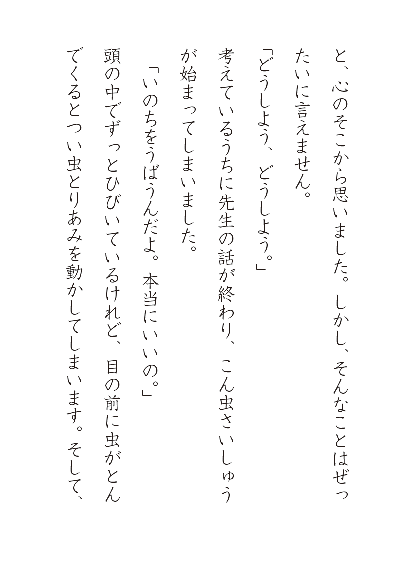 と、心のそこから思いました。しかし、そんなことはぜっ
たいに言えません。
「どうしよう、どうしよう。」
考えているうちに先生の話が終わり、こん虫さいしゅう
が始まってしまいました。
「いのちをうばうんだよ。本当にいいの。」
頭の中でずっとひびいているけれど、目の前に虫がとん
でくるとつい虫とりあみを動かしてしまいます。そして、